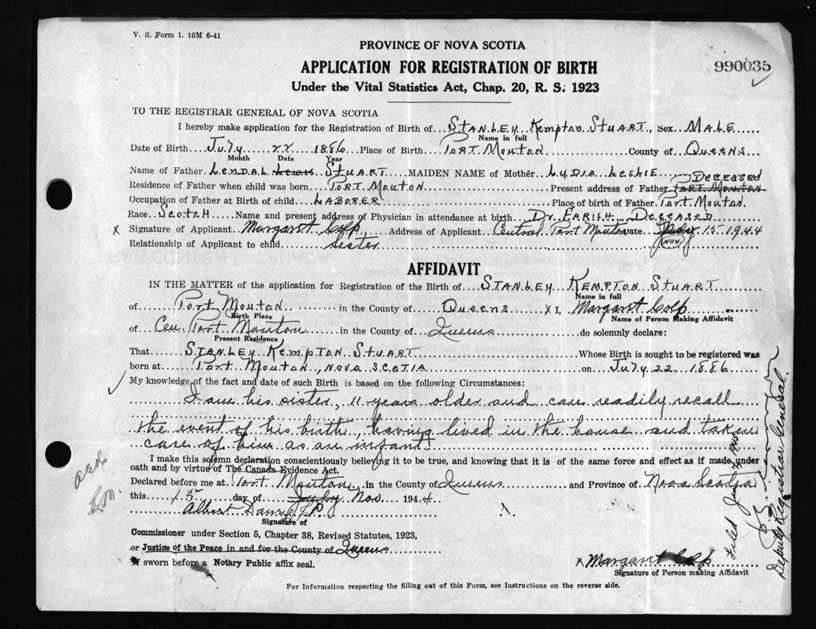 V. S. Form 1. 10M 6-41
PROVINCE OF NOVA SCOTIA
APPLICATION FOR REGISTRATION OF BIRTH
990035
Under the Vital Statistics Act, Chap. 20, R. S. 1923
TO THE REGISTRAR GENERAL OF NOVA SCOTIA
I hereby make application for the Registration of Birth of STANLEY KEMPTON STUART, Sex MALE
Name in full
Date of Birth July 22 1886 Place of Birth PORT MOUTON County of QUEENS
Month Date Year
Name of Father LENDAL Lewis STUART MAIDEN NAME of Mother LYDIA LESLIE DECEASED
Residence of Father when child was born PORT MOUTON Present address of Father PORT MOUTON
Occupation of Father at Birth of child LABORER Place of birth of Father PORT MOUTON
Race SCOTCH Name and present address of Physician in attendance at birth DR. FARISH DECEASED
x Signature of Applicant Margaret Colp Address of Applicant Central Port Mouton Date July 15 1944
(NOV.)
Relationship of Applicant to child Sister
AFFIDAVIT
IN THE MATTER of the application for Registration of the Birth of STANLEY KEMPTON STUART
Name in full
of Port Mouton in the County of Queens x I, Margaret Colp
Birth Place Name of Person Making Affidavit
of Cen. Port Mouton in the County of Queens do solemnly declare:
Present Residence
That STANLEY KEMPTON STUART Whose Birth is sought to be registered was
born at PORT MOUTON, NOVA SCOTIA on July 22 1886
My knowledge of the fact and date of such Birth is based on the following Circumstances:
I am his sister, 11 years older and can readily recall
the event of his birth, having lived in the house and taken
care of him as an infant.
I make this solemn declaration conscientiously believing it to be true, and knowing that it is of the same force and effect as if made under
oath and by virtue of The Canada Evidence Act.
Declared before me at Port Mouton in the County of Queens and Province of Nova Scotia
this 15 day of July Nov. 1944
Albert J.P.
Signature of
Commissioner under Section 5, Chapter 38, Revised Statutes, 1923,
or Justice of the Peace in and for the County of Queens
If sworn before a Notary Public affix seal.
x Margaret Colp
Signature of Person making Affidavit
For Information respecting the filling out of this Form, see Instructions on the reverse side.
Filed
Deputy Registrar General.